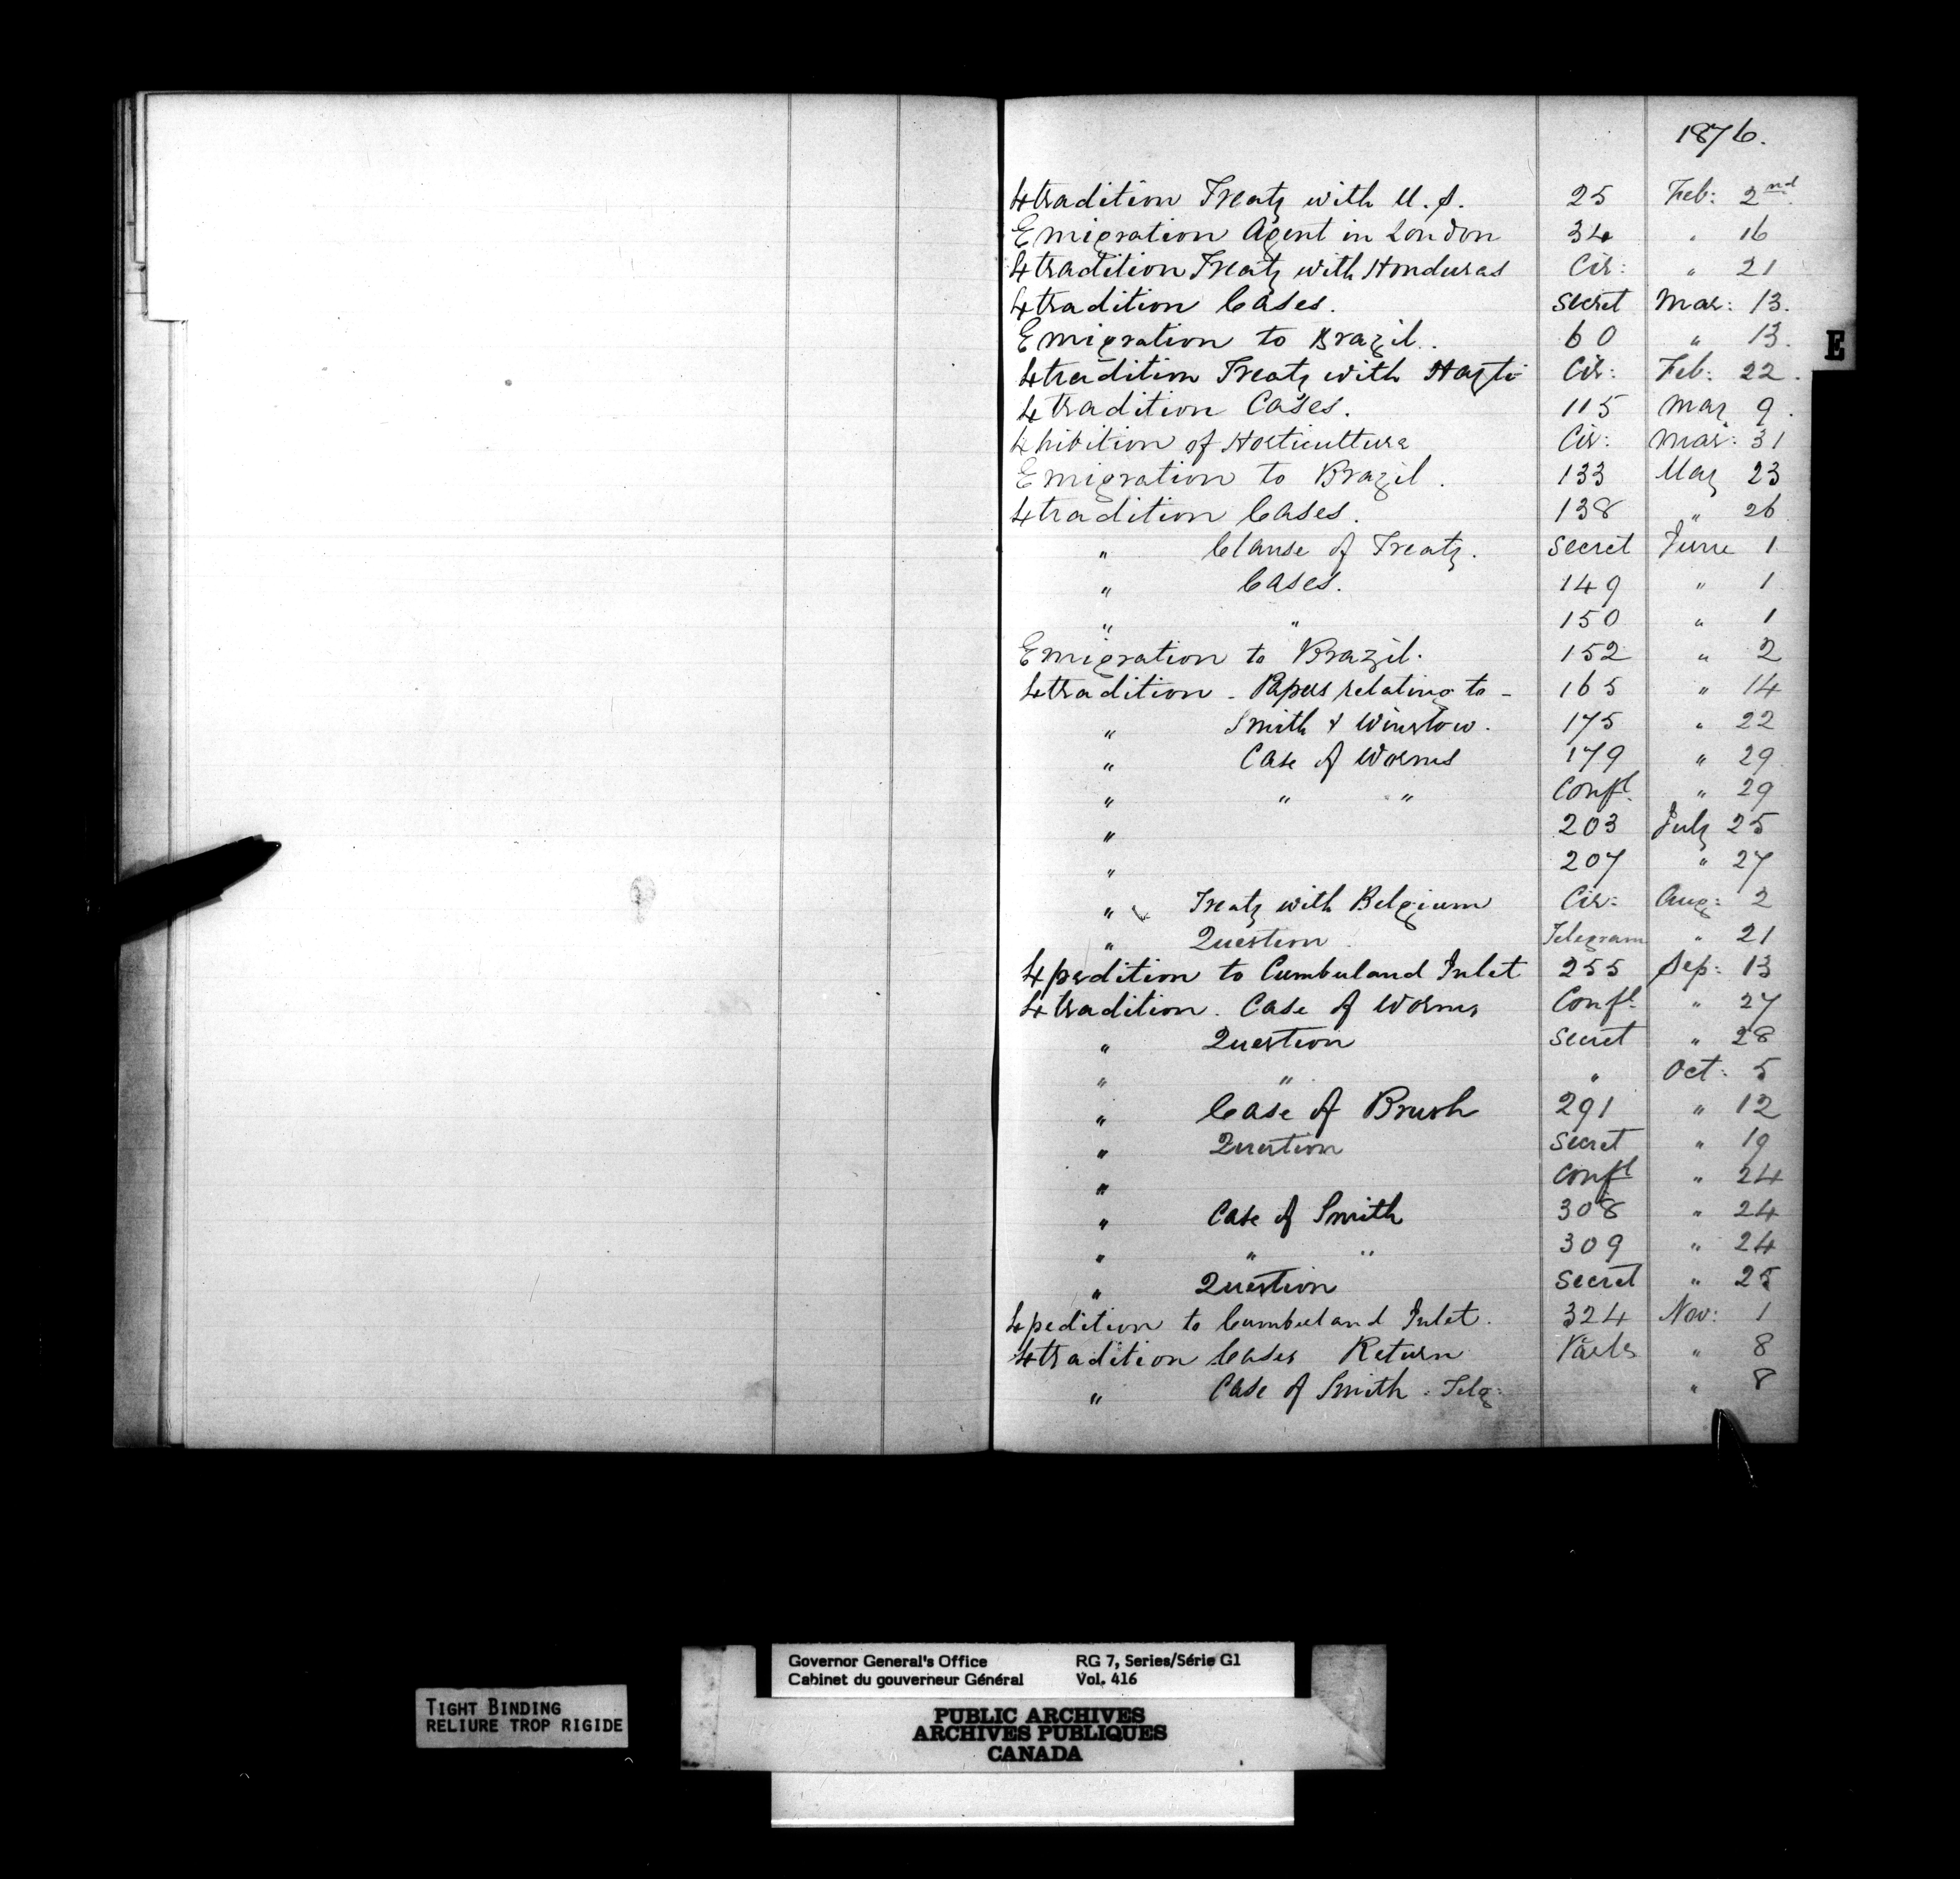 1876.
Extradition Treaty with U.S. 25 Feb: 2nd
Emigration Agent in London 34 " 16
Extradition Treaty with Honduras Cir: " 21
Extradition Cases. Secret Mar: 13.
Emigration to Brazil. 60 " 13.
Extradition Treaty with Hayti Cir: Feb: 22.
Extradition Cases. 115 May 9.
Exhibition of Horticulture Cir: Mar: 31
Emigration to Brazil. 133 May 23
Extradition Cases. 138 " 26
" Clause of Treaty. Secret June 1
" Cases. 149 " 1
" " 150 " 1
Emigration to Brazil. 152 " 2
Extradition - Papers relating to - 165 " 14
" Smith & Winslow. 175 " 22
" Case of Worms 179 " 29
" " " Confl. " 29
" 203 July 25
" 207 " 27
" Treaty with Belgium Cir: Aug: 2
" Question Telegram " 21
Expedition to Cumberland Inlet 255 Sep: 13
Extradition. Case of Worms Confl. " 27
" Question Secret " 28
" " " Oct: 5
" Case of Brush 291 " 12
" Question Secret " 19
" Confl " 24
" Case of Smith 308 " 24
" " " 309 " 24
" Question Secret " 25
Expedition to Cumberland Inlet. 324 Nov: 1
Extradition Cases Return " 8
" Case of Smith. Telg: " 8
E
TIGHT BINDING
RELIURE TROP RIGIDE
Governor General's Office RG 7, Series/Série G1
Cabinet du gouverneur Général Vol. 416
PUBLIC ARCHIVES
ARCHIVES PUBLIQUES
CANADA